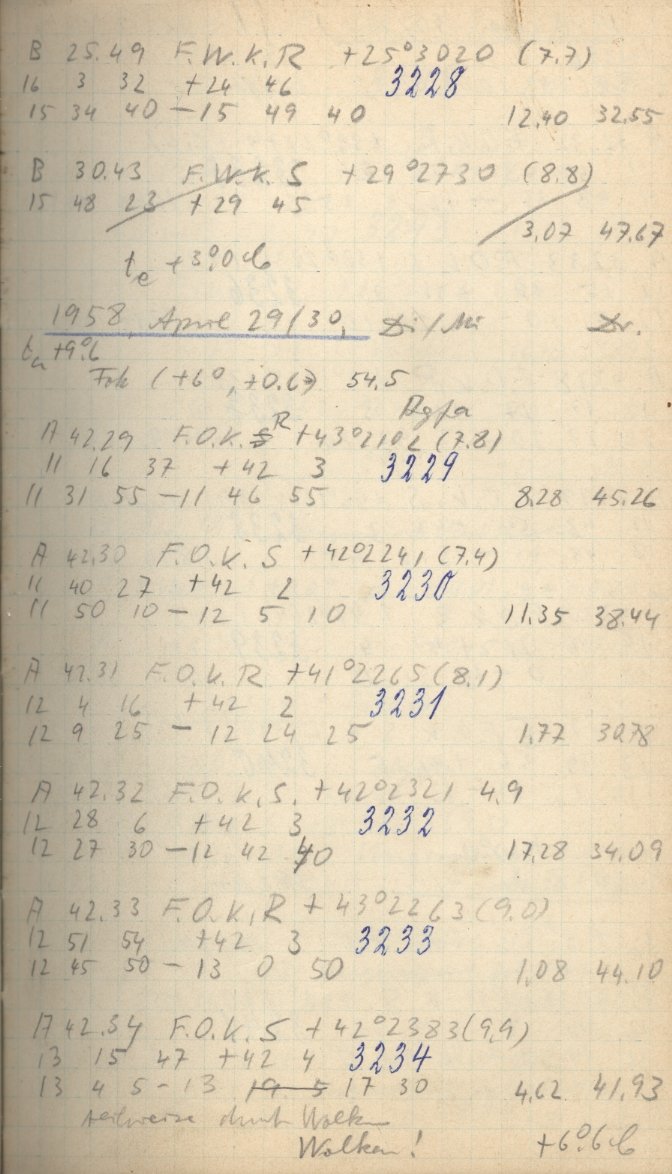 B 25.49 F.W.K.R +25°3020 (7.7)
16 3 32 +24 46 3228
15 34 40 - 15 49 40 12.40 32.55
B 30.43 F.W.K. S +29°2730 (8.8)
15 48 23 +29 45
3.07 47.67
te +3°.0
1958, April 29/30, Di/Mi Dr.
ta +9°.6
Fok (+6°, +0.6) 54.5
Agfa
A 42.29 F.O.K. S R +43°2102 (7.8)
11 16 37 +42 3 3229
11 31 55 - 11 46 55 8.28 45.26
A 42.30 F.O.K. S +42°2241 (7.4)
11 40 27 +42 2 3230
11 50 10 - 12 5 10 11.35 38.44
A 42.31 F.O.K.R +41°2265 (8.1)
12 4 16 +42 2 3231
12 9 25 - 12 24 25 1.77 30.78
A 42.32 F.O.K.S. +42°2321 4.9
12 28 6 +42 3 3232
12 27 30 - 12 42 40 17.28 34.09
A 42.33 F.O.K.R +43°2263 (9.0)
12 51 54 +42 3 3233
12 45 50 - 13 0 50 1.08 44.10
A 42.34 F.O.K.S +42°2383 (9.9)
13 15 47 +42 4 3234
13 4 5 - 13 19 5 17 30 4.62 41.93
teilweise durch Wolken
Wolken! +6°.6